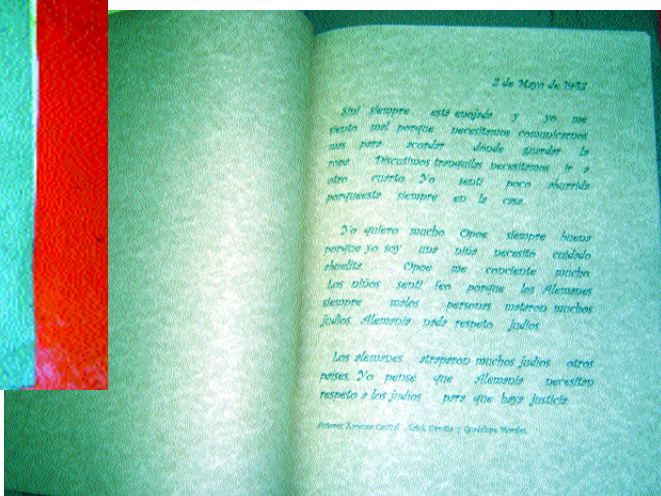 2 de Mayo de
Sini siempre está enojada y yo me
siento mal porque necesitamos comunicarnos
mas para acordar donde guardar la
ropa. Discutimos tranquilas necesitamos ir a
otro cuarto. Yo senti poco aburrida
porqueesta siempre en la casa.
Yo quiero mucho Opoe siempre buena
porque yo soy una niña necesito cuidado
abuelita. Opoe me conciente mucho.
Los niños senti feo porque los Alemanes
siempre malos personas mataron muchos
judios. Alemania nada respeto judios.
Los alemanes atraparon muchos judios otros
paises. Yo pensé que Alemania necesitan
respeto a los judios para que haya justicia
Autores: Carrillo y Guadalupe Morales.